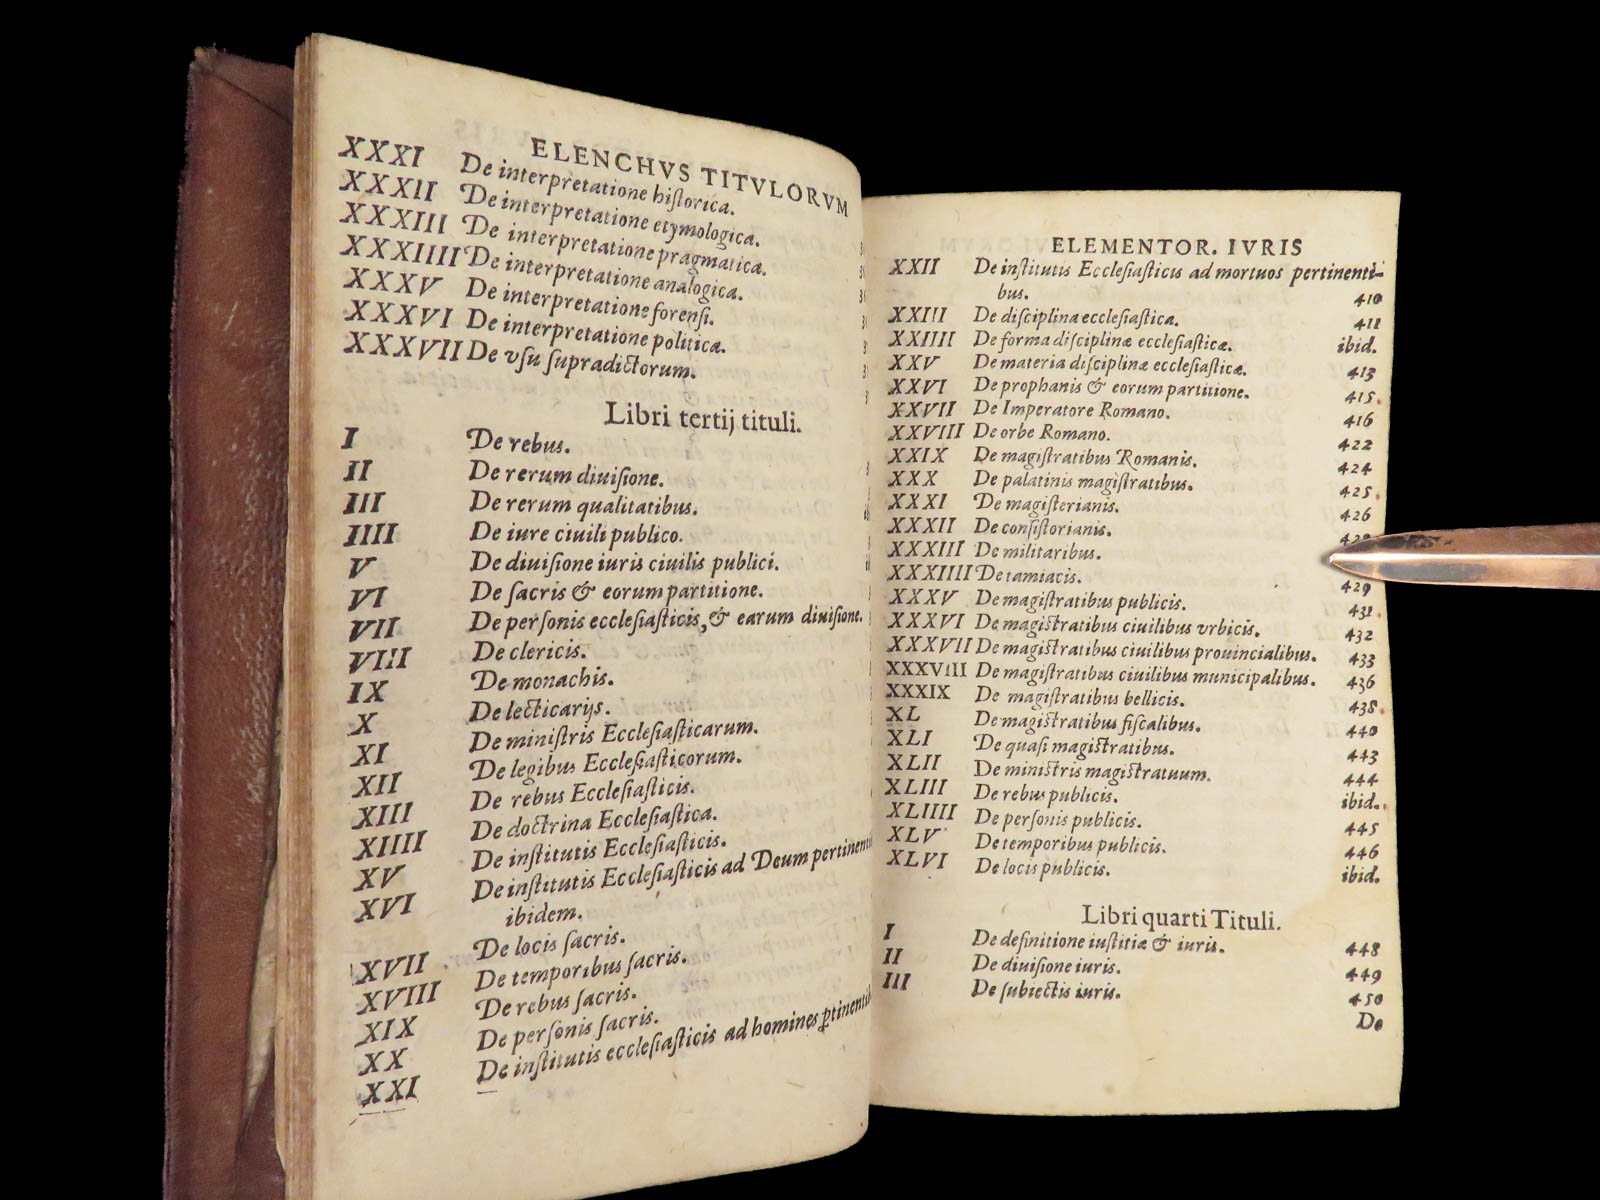 ELENCHVS TITVLORVM
XXXI De interpretatione hiſtorica.
XXXII De interpretatione etymologica.
XXXIII De interpretatione pragmatica.
XXXIIII De interpretatione analogica.
XXXV De interpretatione forenſi.
XXXVI De interpretatione politica.
XXXVII De vſu ſupradictorum.
Libri tertij tituli.
I De rebus.
II De rerum diuiſione.
III De rerum qualitatibus.
IIII De iure ciuili publico.
V De diuiſione iuris ciuilis publici.
VI De ſacris & eorum partitione.
VII De perſonis eccleſiaſticis, & earum diuiſione.
VIII De clericis.
IX De monachis.
X De lecticarijs.
XI De miniſtris Eccleſiaſticarum.
XII De legibus Eccleſiaſticorum.
XIII De rebus Eccleſiaſticis.
XIIII De doctrina Eccleſiaſtica.
XV De inſtitutis Eccleſiaſticis.
XVI De inſtitutis Eccleſiaſticis ad Deum pertinenti
ibidem.
XVII De locis ſacris.
XVIII De temporibus ſacris.
XIX De rebus ſacris.
XX De perſonis ſacris.
XXI De inſtitutis eccleſiaſticis ad homines ꝑtinentib
ELEMENTOR. IVRIS
XXII De inſtitutis Eccleſiaſticis ad mortuos pertinenti-
bus. 410
XXIII De diſciplina eccleſiaſtica. 411
XXIIII De forma diſciplinæ eccleſiaſticæ. ibid.
XXV De materia diſciplinæ eccleſiaſticæ. 413
XXVI De prophanis & eorum partitione. 415.
XXVII De Imperatore Romano. 416
XXVIII De orbe Romano. 422
XXIX De magiſtratibus Romanis. 424
XXX De palatinis magiſtratibus. 425.
XXXI De magiſterianis. 426
XXXII De conſiſtorianis. 428
XXXIII De militaribus.
XXXIIII De tamiacis. 429
XXXV De magiſtratibus publicis. 431.
XXXVI De magiſtratibus ciuilibus vrbicis. 432
XXXVII De magiſtratibus ciuilibus prouincialibus. 433
XXXVIII De magiſtratibus ciuilibus municipalibus. 436
XXXIX De magiſtratibus bellicis. 438.
XL De magiſtratibus fiſcalibus. 440
XLI De quaſi magiſtratibus. 443
XLII De miniſtris magiſtratuum. 444
XLIII De rebus publicis. ibid.
XLIIII De perſonis publicis. 445
XLV De temporibus publicis. 446
XLVI De locis publicis. ibid.
Libri quarti Tituli.
I De definitione iuſtitiæ & iuris. 448
II De diuiſione iuris. 449
III De ſubiectis iuris. 450
De